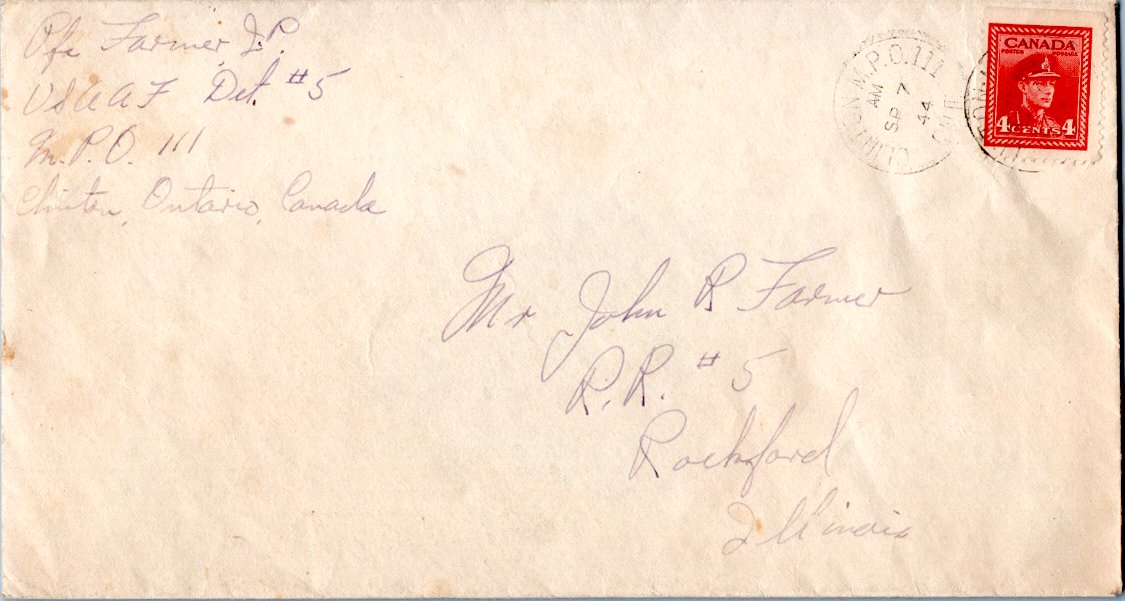 Pfc Farmer J.P.
USAAF Det. #5
M.P.O. 111
Clinton, Ontario, Canada
CLINTON M.P.O. 111
AM
SP 7
44
ONT
CANADA
POSTES POSTAGE
4 CENTS 4
Mr John R Farmer
R.R. #5
Rockford
Illinois